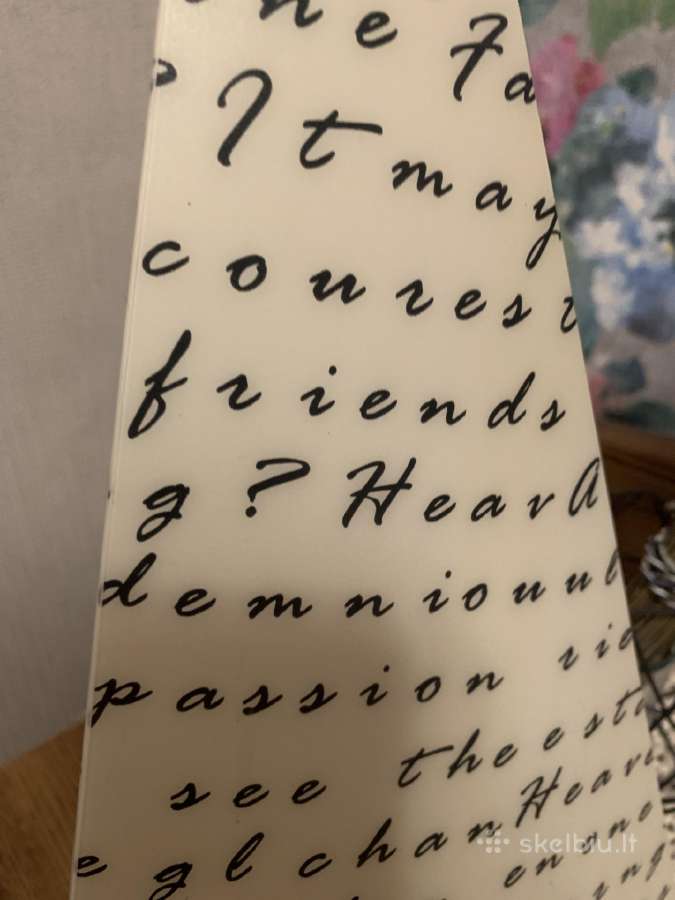 ne Fa
It may
courest
friends
g? HearA
demniouu
passion rio
see the esta
egl chan Hear
en one
ings
skelbiu.lt